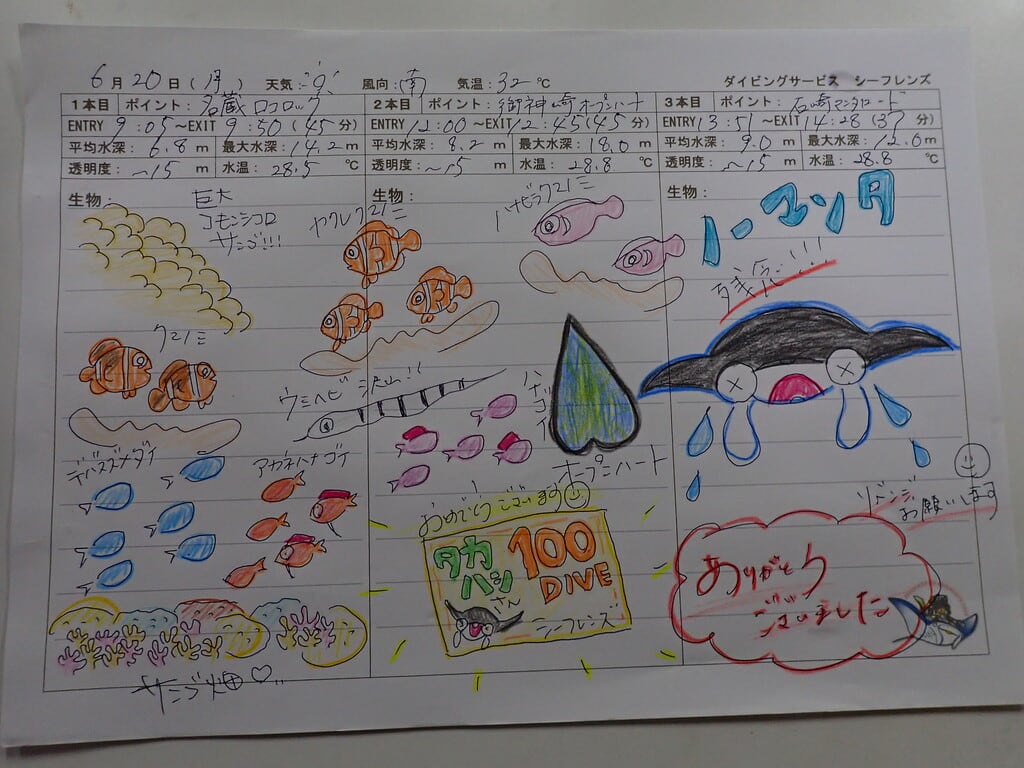 6月20日(月) 天気: 風向:南 気温:32℃ ダイビングサービス シーフレンズ
1本目 ポイント:名蔵ロコロック
ENTRY 9:05~EXIT 9:50(45分)
平均水深: 6.8 m 最大水深: 14.2 m
透明度: ~15 m 水温: 28.5 ℃
生物:
巨大
コモンシコロ
サンゴ!!!
クマノミ
デバスズメダイ
アカネハナゴイ
サンゴ畑♡
2本目 ポイント:御神崎オープンハート
ENTRY 12:00~EXIT 12:45(45分)
平均水深: 8.2 m 最大水深: 18.0 m
透明度: ~15 m 水温: 28.8 ℃
生物:
カクレクマノミ
ハナビラクマノミ
ウミヘビ 沢山!!
ハナゴイ
オープンハート
おめでとうございます
タカ
ハシ
さん
100
DIVE
シーフレンズ
3本目 ポイント:石崎マンタロード
ENTRY 13:51~EXIT 14:28(37分)
平均水深: 9.0 m 最大水深: 12.0 m
透明度: ~15 m 水温: 28.8 ℃
生物:
ノーマンタ
残念!!!
リベンジ
お願いします
ありがとう
ございました